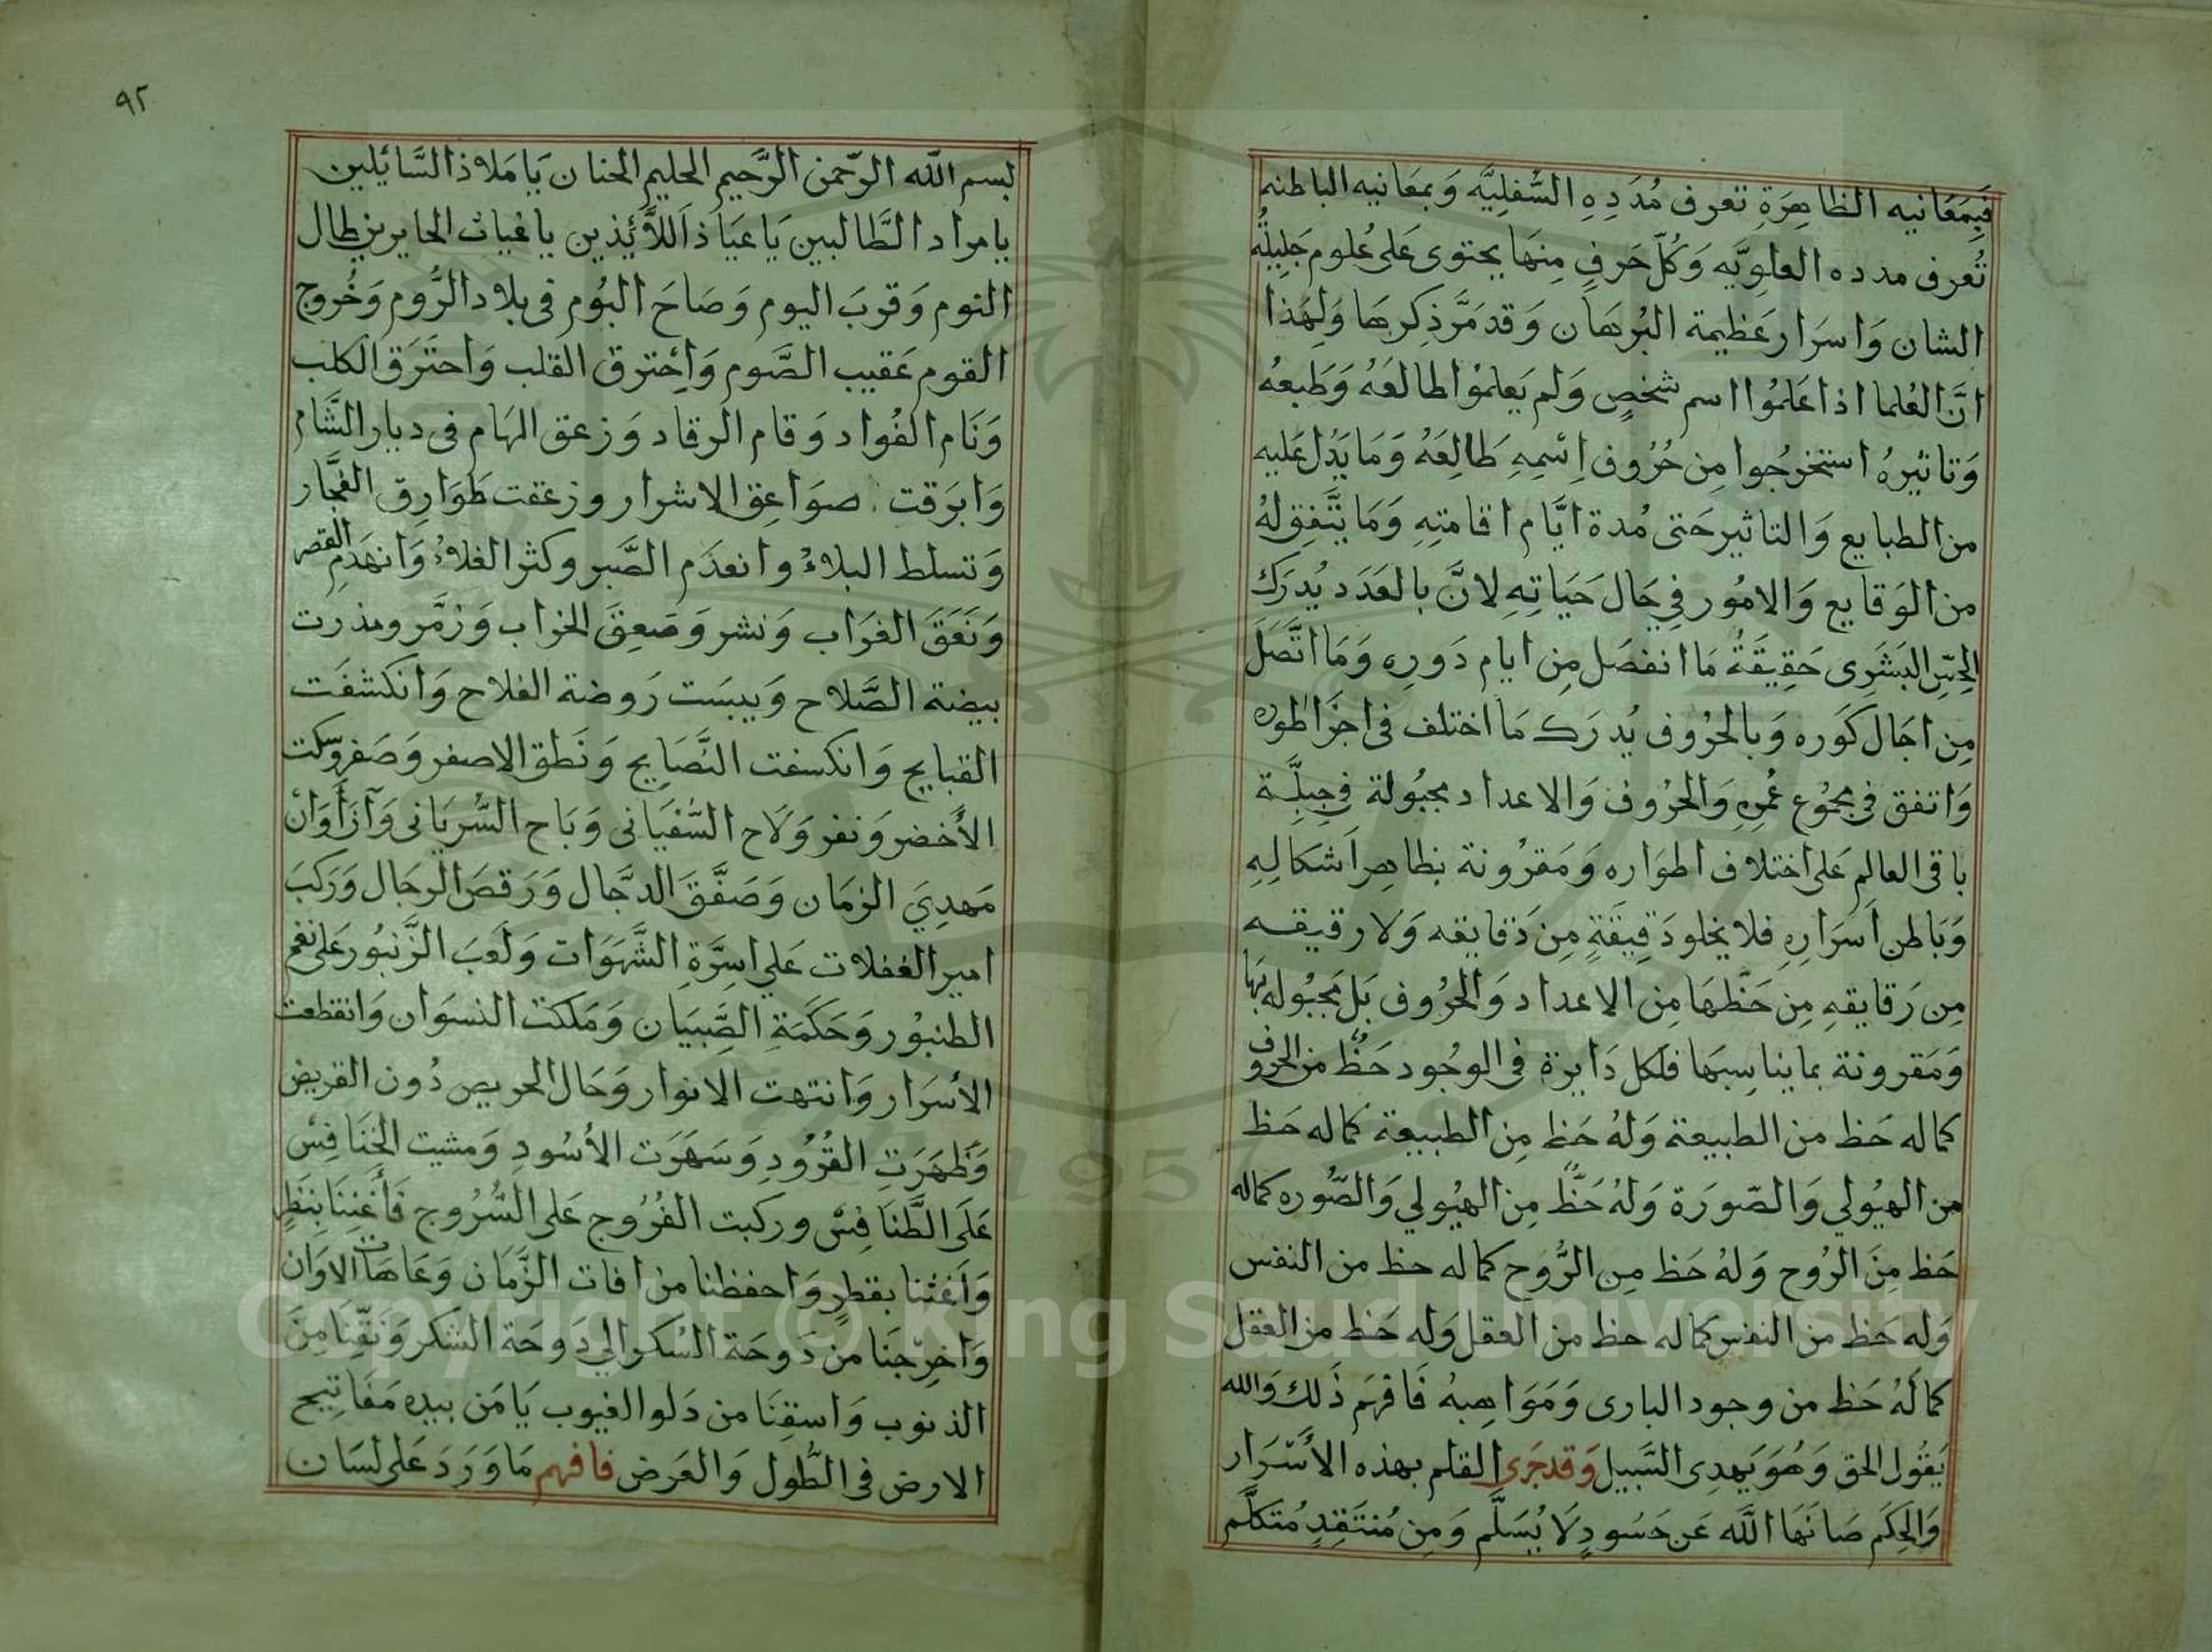 فَبِمَعَانيه الظاهِرَةِ تعرف مُدَدِهِ السُّفلِيَّه وَبمعَانيه الباطنه
تُعرف مدده العلوِيَّه وَكُلّ حَرفٍ مِنهَا يحتوى عَلى عُلوم جَلِيلةُ
الشان وَاسرَار عَظِيمة البُرهَان وَقد مَرَّ ذِكرهَا وَلِهَذا
انَّ العُلما اذا عَلمُوا اسم شخصٍ وَلم يَعلمُوا طالعَهُ وَطَبعهُ
وَتاثيرهُ استخرجُوا مِن حُرُوف اِسْمِهِ طَالِعَهُ وَمَا يَدُل عَليه
من الطبايع وَالتاثير حَتى مُدة ايَّام اقامتِهِ وَمَا يتَّفِق لهُ
من الوَقايع وَالامُور في حَال حَيَاتِهِ لانَّ بالعَدَد يُدرَك
الحِسّ البَشَرى حَقِيقَةُ مَا انفصَل مِن ايام دَورِه وَمَا اتَّصَل
مِن اجَال كَوره وَبالحُرُوف يُدرَك مَا اختلف فى اجزَا طوره
وَاتفق فى مجمُوع عُمرِهِ وَالحرُوف وَالاعداد مجبُولة فى جِبلَّة
باقى العالم عَلى اختلاف اطوَاره وَمَقرُونة بظاهِر اَشكالِهِ
وَبَاطن اَسرَارِهِ فلا يخلو دَقِيقَةٍ مِن دَقايقه وَلا رقيقه
مِن رَقايقهِ مِن حَظّهَا مِن الاعداد وَالحُرُوف بَل مَجبُوله بهَا
وَمَقرونة بما يناسِبهَا فلكل دَايرة فى الوجُود حَظٌّ من الحروف
كما له حَظ من الطبيعة وَلهُ حَظ مِن الطبيعة كما له حَظ
من الهيُولي وَالصّورَة وَلهُ حَظٌّ مِن الهيُولي وَالصُّوره كماله
حَظ مِنَ الرُوح وَلهُ حَظ مِن الرُّوح كما له حظ من النفس
وَله حَظ من النفس كما له حظ من العقل وَله حَظ من العقل
كما لَهُ حَظ من وجود البارى وَمَوَاهِبهُ فَافهَم ذَلك وَالله
يَقُول الحق وَهُوَ يَهدِى السَّبيل وَقد جَرَى القلم بهذه الأسْرَار
وَالحِكَم صَانَهَا اللَّه عَن حَسُودٍ لَا يُسَلَّم وَمِن مُنتَقِدٍ مُتَكلَّم
٩٢
بسم اللّه الرّحمن الرَّحيم الحليم الحنان يَا مَلاذ السَّائلين
يا مراد الطَّالبين يَا عيَاذ اَللاَّئذين يا غياث الحايرين طال
النوم وَقربَ اليوم وَصَاحَ البُوم فى بلاد الرُّوم وَخُروج
القوم عَقيب الصَّوم وَاحترق القلب وَاحتَرَق الكلب
وَنَام الفُواد وَقام الرقاد وَزعق الهَام فى ديار الشَّام
وَابرَقت صوَاعِق الاشرار وزعقت طَوَارِق الفجَّار
وَتسلط البلاءُ وانعدَم الصَّبر وكثر الغلاءُ وَانهَدِم القصر
وَنَعَقَ الغرَاب وَنشر وَصَعِقَ الخراب وَزمَّر ومذرت
بيضة الصَّلاح وَيبسَت رَوضة الفلاح وَانكشفَت
القبايح وَانكسفت النَّصَايح وَنَطق الاصفر وَصَفر وسّكت
الأخضر وَنفر وَلَاح السُّفيَانى وَبَاح السُّريَانى وَآنَ أَوَانُ
مَهدِيَ الزمَان وَصَفَّقَ الدجَّال وَرَقصَ الرجَال وَرَكبَ
امير الغفلات عَلي اسِرَّةِ الشَّهَوَات وَلَعَبَ الزَّنبُور عَلى نغم
الطنبُور وَحَكَمَةِ الصِّبيَان وَمَلكت النسوَان وَانقطعت
الأسرَار وَانتهت الانوار وَحَال الحريص دُون القريض
وَظهَرَتِ القُرُودِ وَسَهَرَت الأسُودِ وَمشيت الخنَافِسْ
عَلَى الطَّنَافِسْ وركبت الفُرُوج عَلى السُّرُوج فَأَغِثِنَا بنَظرٍ
وَأغثنا بقطرٍ وَاحفظنا من افات الزَّمَان وَعَاهَات الاوَان
وَاخرِجنَا من دَوحَة السُكر الي دَوحَة الشكر وَنَقّنَا مِنَ
الذنوب وَاسقِنَا من دَلو الغيوب يَا مَن بيده مَفَاتِيح
الارض فى الطُّول وَالعَرض فافهم مَا وَرَدَ عَلى لسَان
Copyright © King Saud University
1957